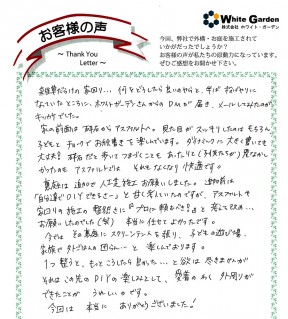 お客様の声
～ Thank You Letter ～
White Garden
株式会社 ホワイト・ガーデン
今回、弊社で外構・お庭を施工されて
いかがだったでしょうか？
お客様の声が私たちの原動力になっています。
ぜひご感想をお聞かせ下さい。
雑草だらけの家回り… 何をどうしたら良いやらと、半ば
なっていたところに、ホワイトガーデンさんからのDMが届き、メールしてみたのが
キッカケでした。
家の前面は砕石からアスファルトへ。見た目がスッキリしたのはもちろん、
子どもと チョークでお絵書きして楽しんでいます。ダイナミックに大きく書いても
大丈夫！ 砕石だと歩いてつまづくことも
かったのも アスファルトだと それもなくなり 快適です。
裏庭は 追加で人工芝 施工をお願いしました。 当初は
「自分達でDIYできるさー」と甘く考えていたのですが、アスファルトや
家回りの施工の 「プロに頼むべき」と
お願いしたのでした(笑) 本当に任せてよかったです。
今では その裏庭に スクリーンテントを張り、子どもの遊び場、
家族で外ごはんの団らん…と 楽しんでおります。
1つ整うと、もっとこうしたら良いかも…と欲は尽きませんが
それはこの先のDIYの楽しみとして、愛着のわく 外周りが
できたことが うれしいです。
今回は 本当に ありがとうございました！